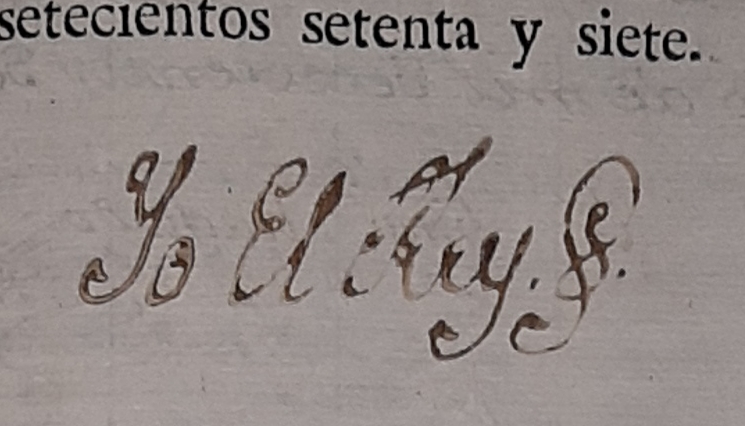 setecientos setenta y siete.
Yo El Rey.